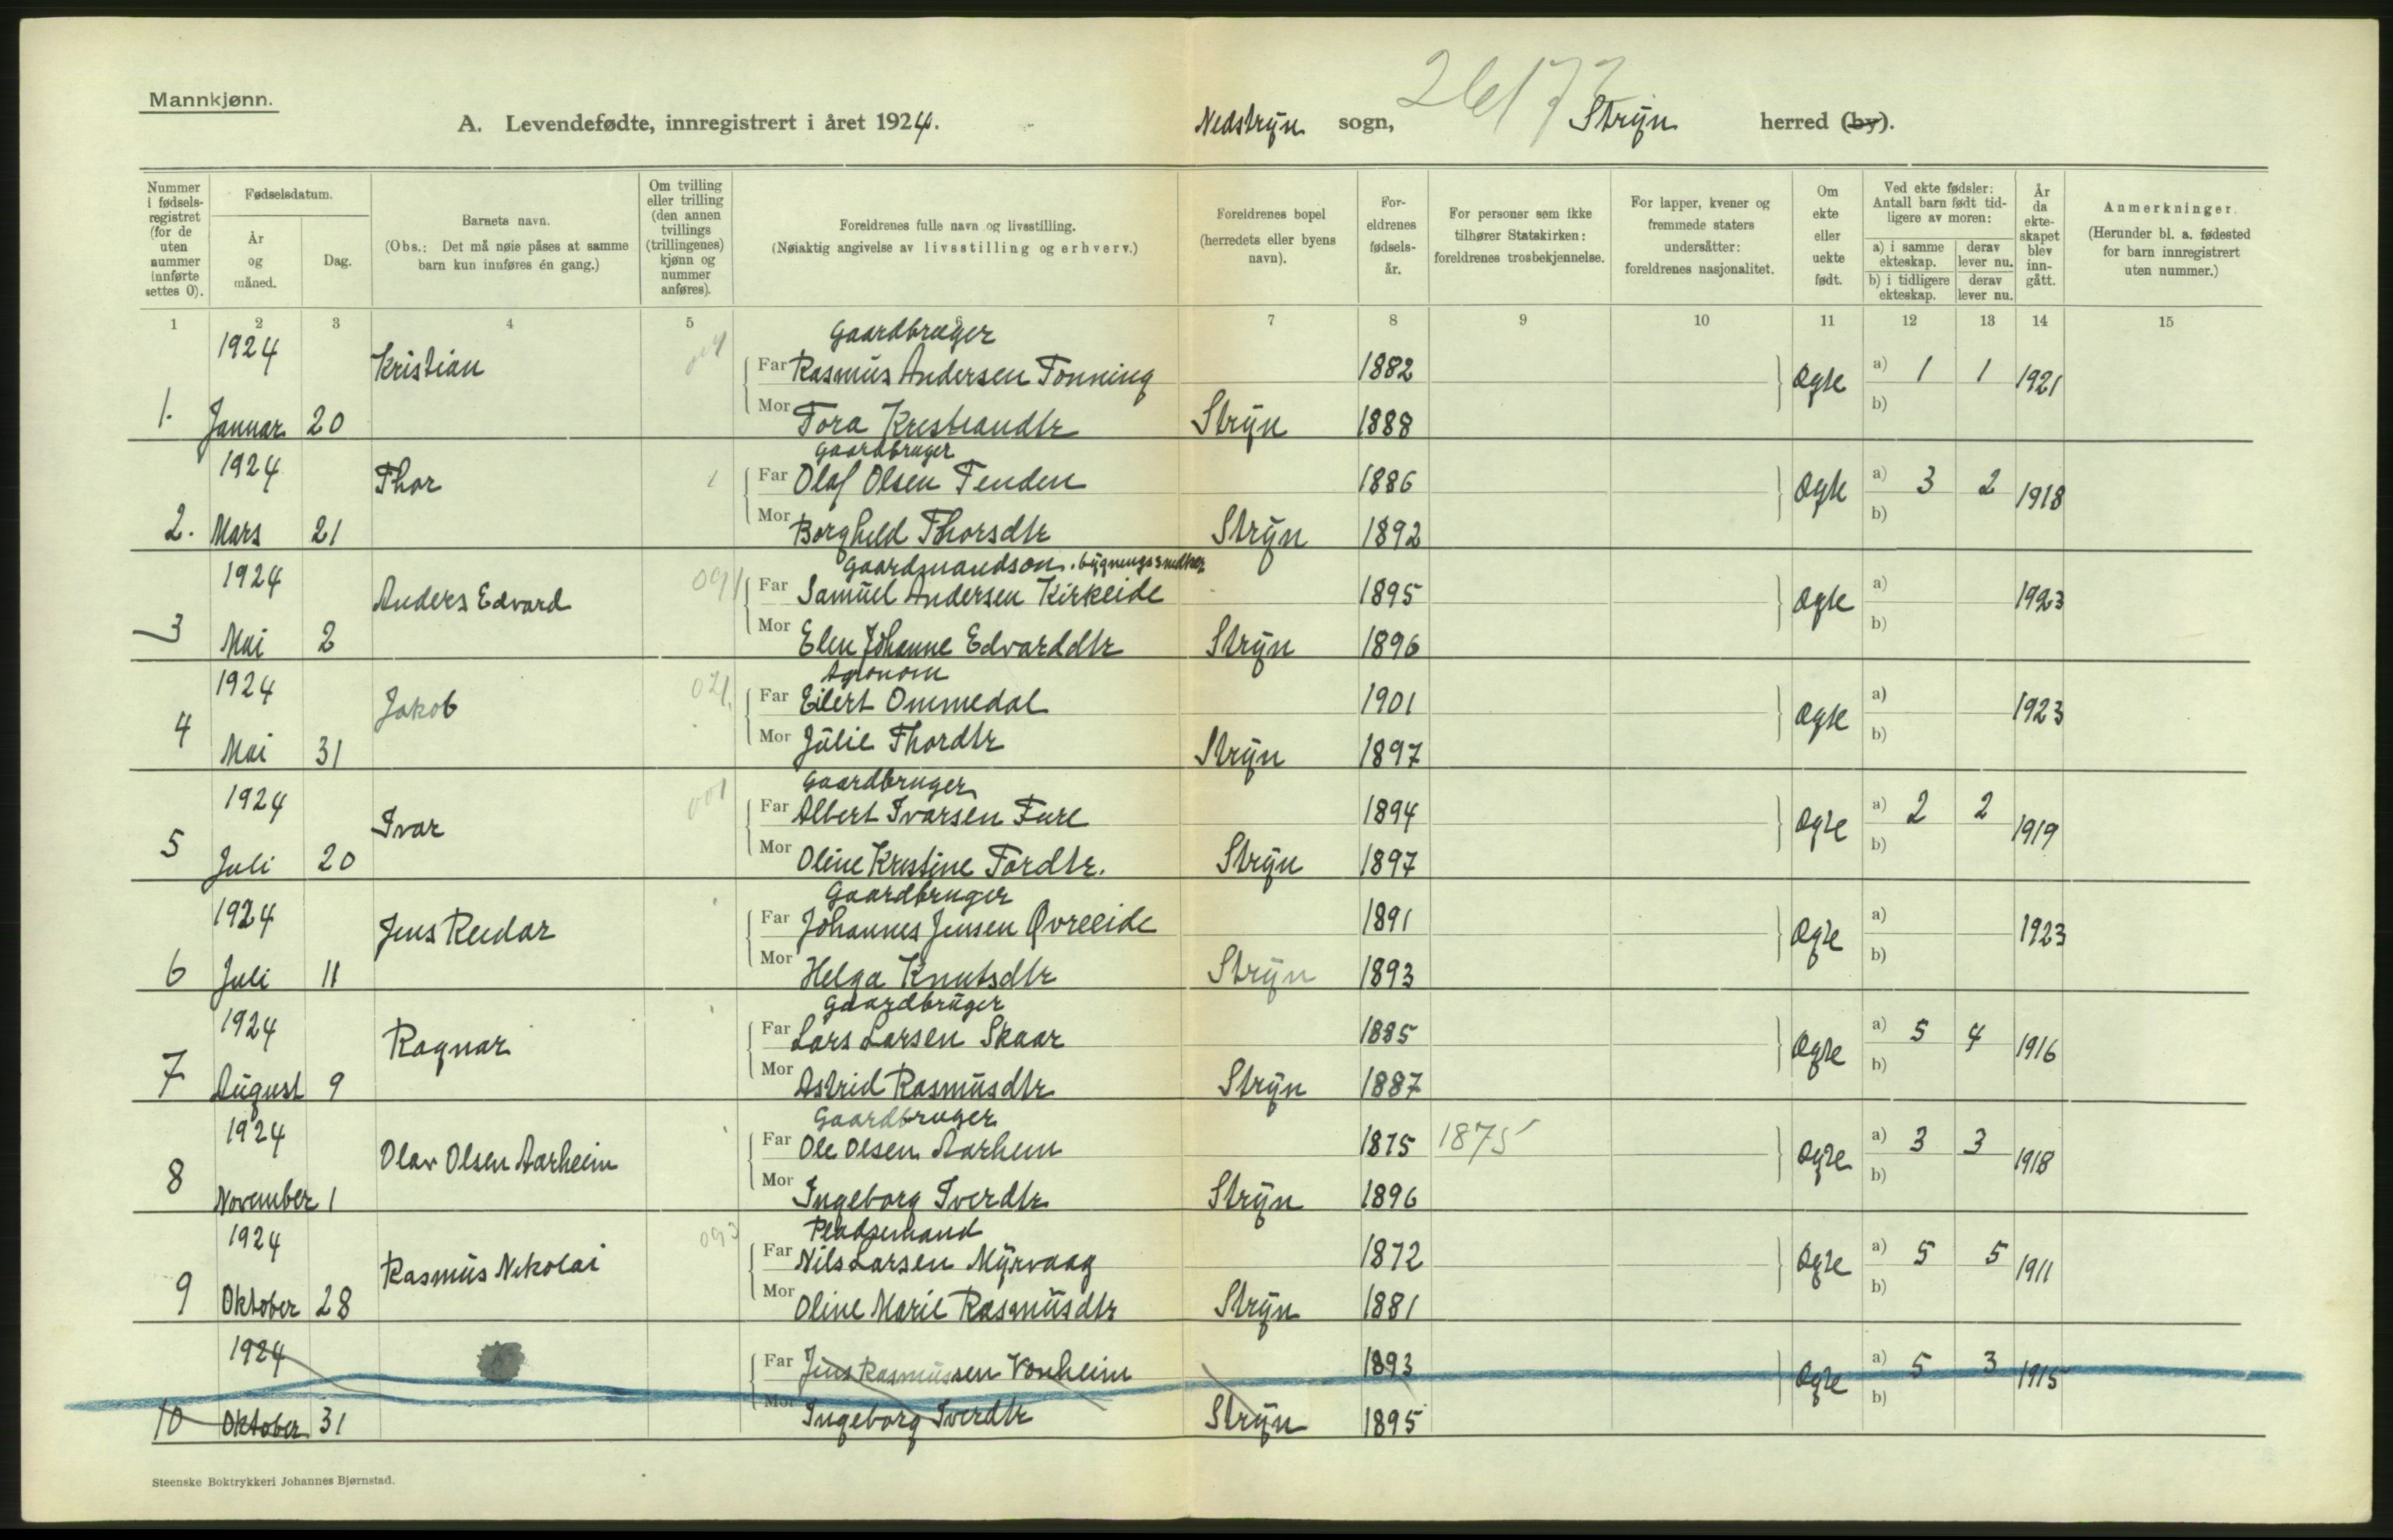 Mannkjønn.
A. Levendefødte, innregistrert i året 1924.
Nedstryn sogn, Stryn herred (by).
Nummer i fødsels-registret (for de uten nummer innførte settes 0).
Fødselsdatum.
År og måned.
Dag.
Barnets navn.
(Obs.: Det må nøie påses at samme barn kun innføres én gang.)
Om tvilling eller trilling (den annen tvillings (trillingenes) kjønn og nummer anføres).
Foreldrenes fulle navn og livsstilling.
(Nøiaktig angivelse av livsstilling og erhverv.)
Foreldrenes bopel (herredets eller byens navn).
For-eldrenes fødsels-år.
For personer som ikke tilhører Statskirken: foreldrenes trosbekjennelse.
For lapper, kvener og fremmede staters undersåtter: foreldrenes nasjonalitet.
Om ekte eller uekte født.
Ved ekte fødsler: Antall barn født tid-ligere av moren:
a) i samme ekteskap. derav lever nu.
b) i tidligere ekteskap. derav lever nu.
År da ekte-skapet blev inn-gått.
Anmerkninger.
(Herunder bl. a. fødested for barn innregistrert uten nummer.)
1 2 3 4 5 6 7 8 9 10 11 12 13 14 15
Gaardbruger
1924 Kristian Far Rasmus Andersen Tonning 1882 Ægte a) 1 1 1921
1. Januar 20 Mor Tora Kristiandtr Stryn 1888 b)
Gaardbruger
1924 Thor Far Olaf Olsen Tenden 1886 Ægte a) 3 2 1918
2. Mars 21 Mor Borghild Thorsdtr Stryn 1892 b)
Gaardmandsøn. bygningssnedker
1924 Anders Edvard 091 Far Samuel Andersen Kirkeide 1895 Ægte a) 1923
3 Mai 2 Mor Elen Johanne Edvarddtr Stryn 1896 b)
Agronom
1924 Jakob 021 Far Eilert Ommedal 1901 Ægte a) 1923
4 Mai 31 Mor Julie Thordtr Stryn 1897 b)
Gaardbruger
1924 Ivar 001 Far Albert Ivarsen Fure 1894 Ægte a) 2 2 1919
5 Juli 20 Mor Oline Kristine Tordtr. Stryn 1897 b)
Gaardbruger
1924 Jens Reidar Far Johannes Jensen Øvreeide 1891 Ægte a) 1923
6 Juli 11 Mor Helga Knutsdtr Stryn 1893 b)
Gaardbruger
1924 Ragnar Far Lars Larsen Skaar 1885 Ægte a) 5 4 1916
7 August 9 Mor Astrid Rasmusdtr Stryn 1887 b)
Gaardbruger
1924 Olav Olsen Aarheim Far Ole Olsen Aarheim 1875 1875 Ægte a) 3 3 1918
8 November 1 Mor Ingeborg Iverdtr Stryn 1896 b)
Pladsemand
1924 Rasmus Nikolai 093 Far Nils Larsen Myrvaag 1872 Ægte a) 5 5 1911
9 Oktober 28 Mor Oline Marie Rasmusdtr Stryn 1881 b)
1924 Far Jens Rasmussen Vonheim 1893 Ægte a) 5 3 1915
10 Oktober 31 Mor Ingeborg Iverdtr Stryn 1895 b)
Steenske Boktrykkeri Johannes Bjørnstad.